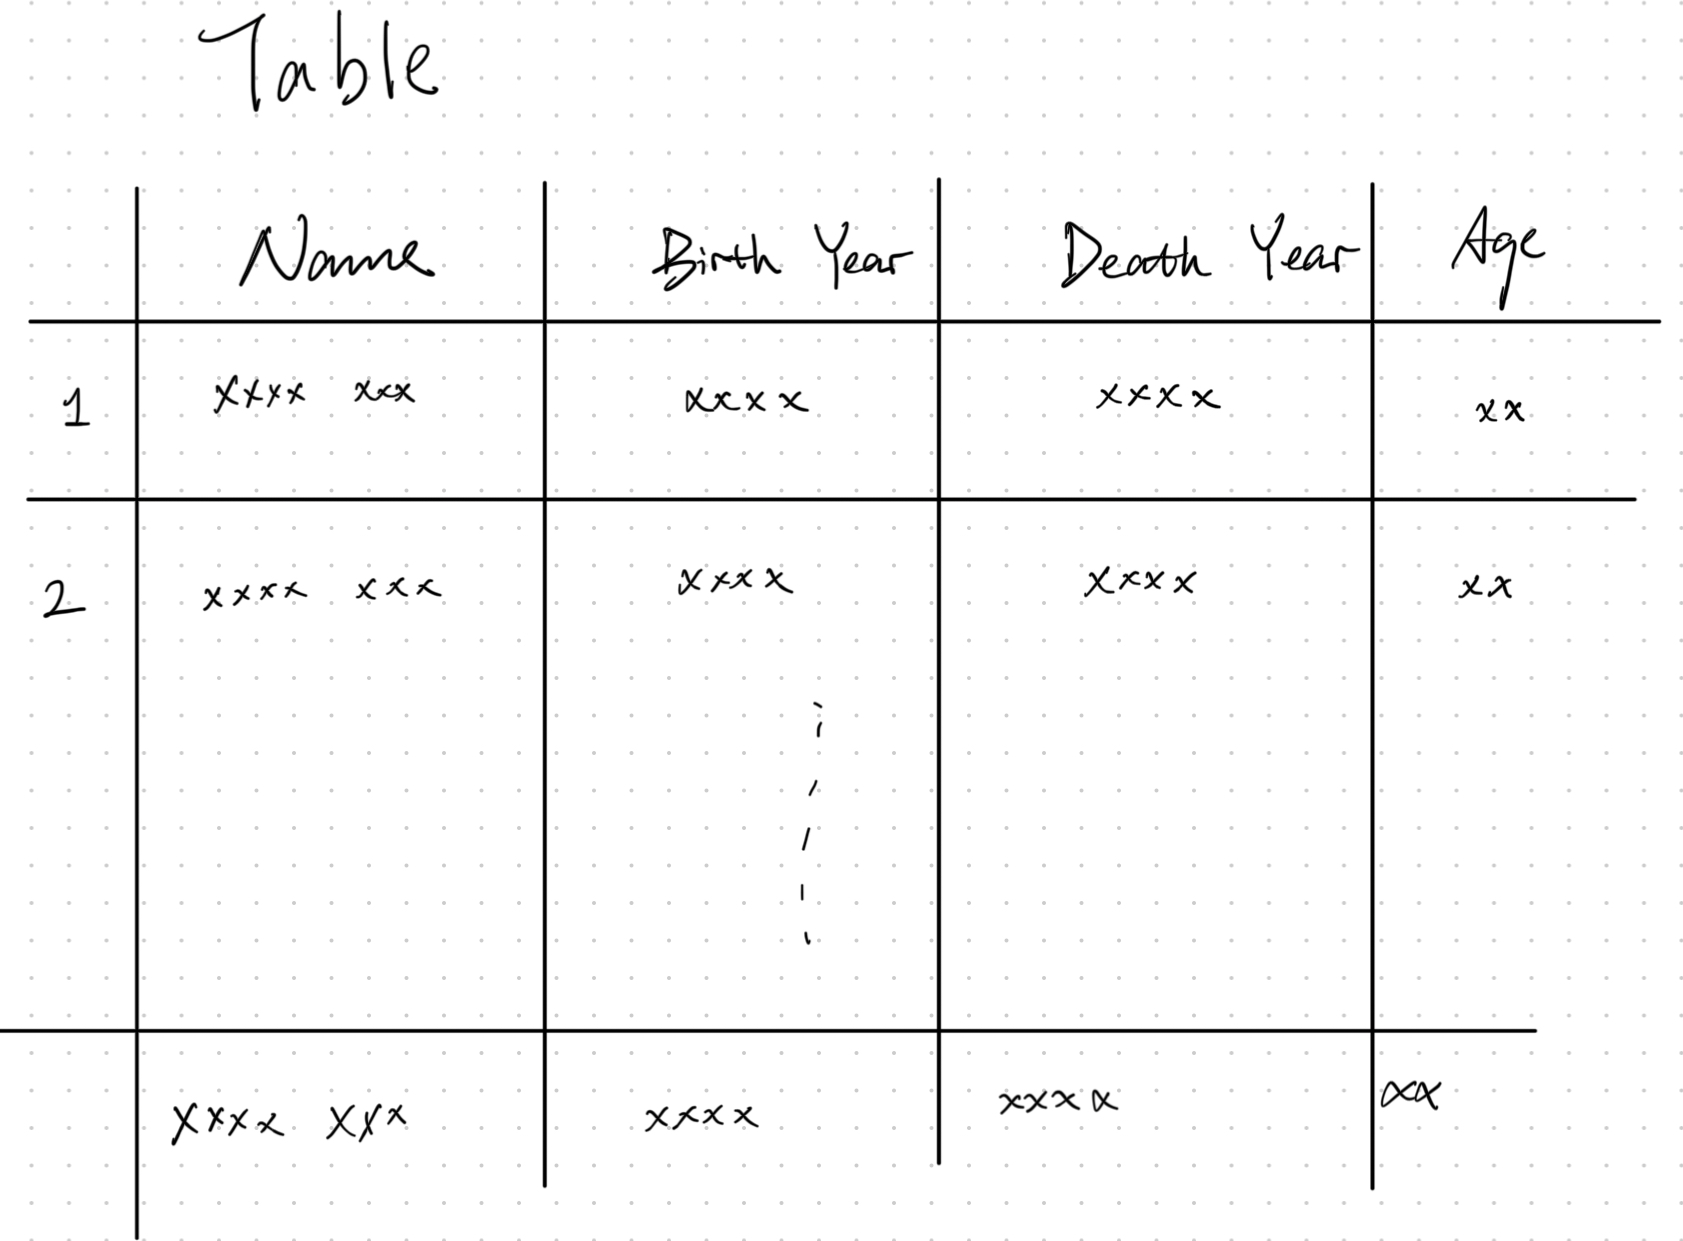 Table
Name Birth Year Death Year Age
1 xxxx xxx xxxx xxxx xx
2 xxxx xxx xxxx xxxx xx
xxxx xxx xxxx xxxx xx